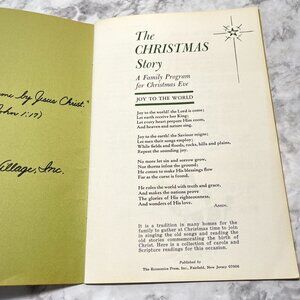 me by Jesus Christ."
John 1:17)
Village, Inc.
The
CHRISTMAS
Story
A Family Program
for Christmas Eve
JOY TO THE WORLD
Joy to the world! the Lord is come;
Let earth receive her King;
Let every heart prepare Him room,
And heaven and nature sing.
Joy to the earth! the Saviour reigns;
Let men their songs employ;
While fields and floods, rocks, hills and plains,
Repeat the sounding joy.
No more let sin and sorrow grow,
Nor thorns infest the ground;
He comes to make His blessings flow
Far as the curse is found.
He rules the world with truth and grace,
And makes the nations prove
The glories of His righteousness,
And wonders of His love.
AMEN.
It is a tradition in many homes for the
family to gather at Christmas time to join
in singing the old songs and reading the
old stories commemorating the birth of
Christ. Here is a collection of carols and
Scripture readings for this occasion.
Published by
The Economics Press, Inc., Fairfield, New Jersey 07006